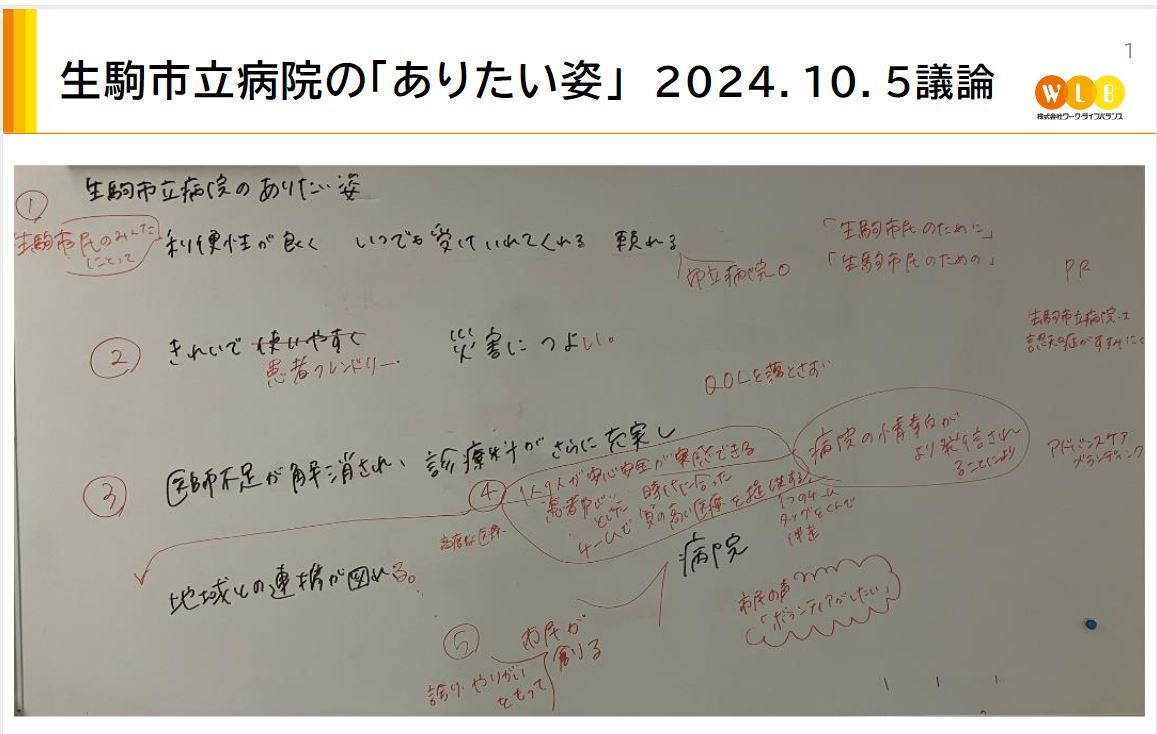 1
生駒市立病院の「ありたい姿」 2024.10.5議論
W L B
株式会社ワーク・ライフバランス
生駒市立病院のありたい姿
①
生駒市民のみんな
にとって
利便性が良く いつでも受けいれてくれる 頼れる
市立病院。
「生駒市民のために」
「生駒市民のための」
PR
② きれいで 使いやすく 災害につよい。
患者フレンドリー
生駒市立病院は
認知症がすすみにく
QOLを落とさず
③ 医師不足が解消され、診療科がさらに充実し
病院の情報が
より発信され
ることにより
アドバンスケア
プランディング
④ 1人1人が安心安全が実感できる
患者中心
とした 時代に合った
チームで 質の高い医療を提供する
1つのチーム
タッグをくんで
伴走
高度な医療
地域との連携が図れる。
病院
市民の声
「ボランティアがしたい」
⑤ 市民が
創る
誇り・やりがい
をもって